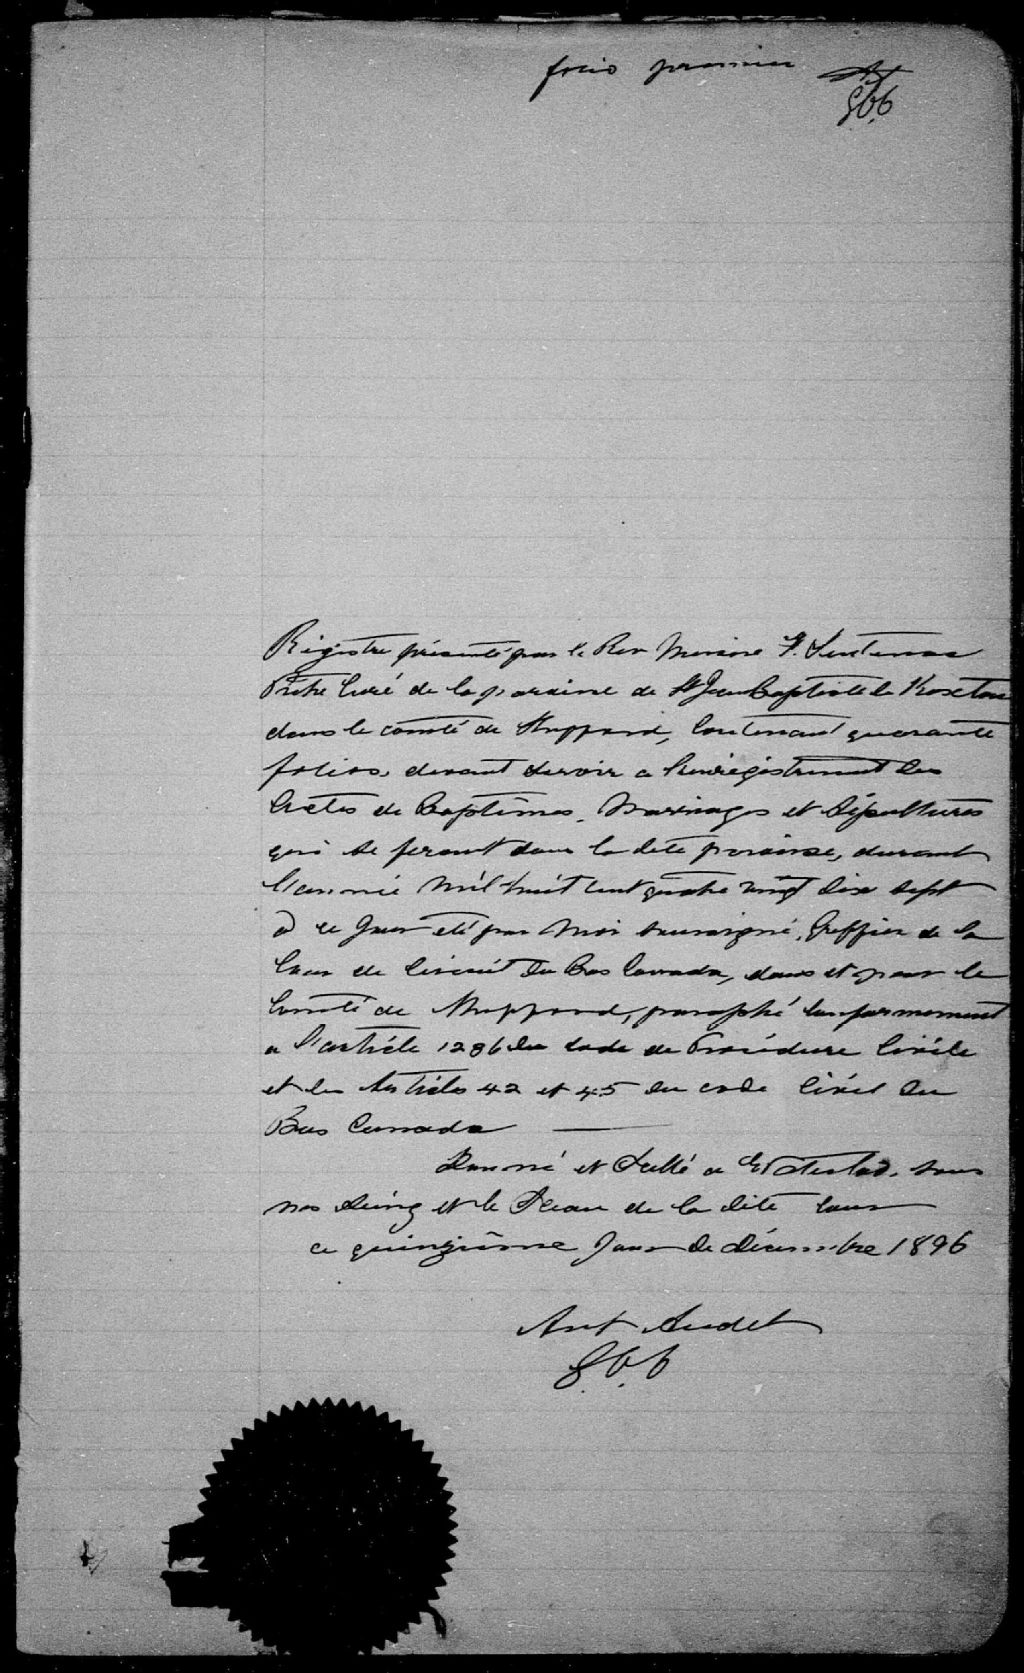 folio premier
AA
G.C.C
Registre présenté par le Rev Messire F. Sentenac
Prêtre Curé de la paroisse de St Jean Baptiste de Roxton
dans le comté de Sheppard, Contenant quarante
folios, devant servir a l'enregistrement des
Actes de Baptêmes, Mariages et Sépultures
qui se feront dans la dite paroisse, durant
l'année Mil huit cent quatre vingt dix sept
a ce jour été par Moi soussigné, Greffier de la
Cour de Circuit du Bas Canada, dans et pour le
Comté de Sheppard, paraphé conformement
a l'article 1236 du code de Procédure Civile
et les Articles 42 et 45 du code Civil du
Bas Canada
Donné et Scellé a Waterloo, sous
nos Seing et le Sceau de la dite Cour
ce quinzième Jour de décembre 1896
Ant Audet
G.C.C